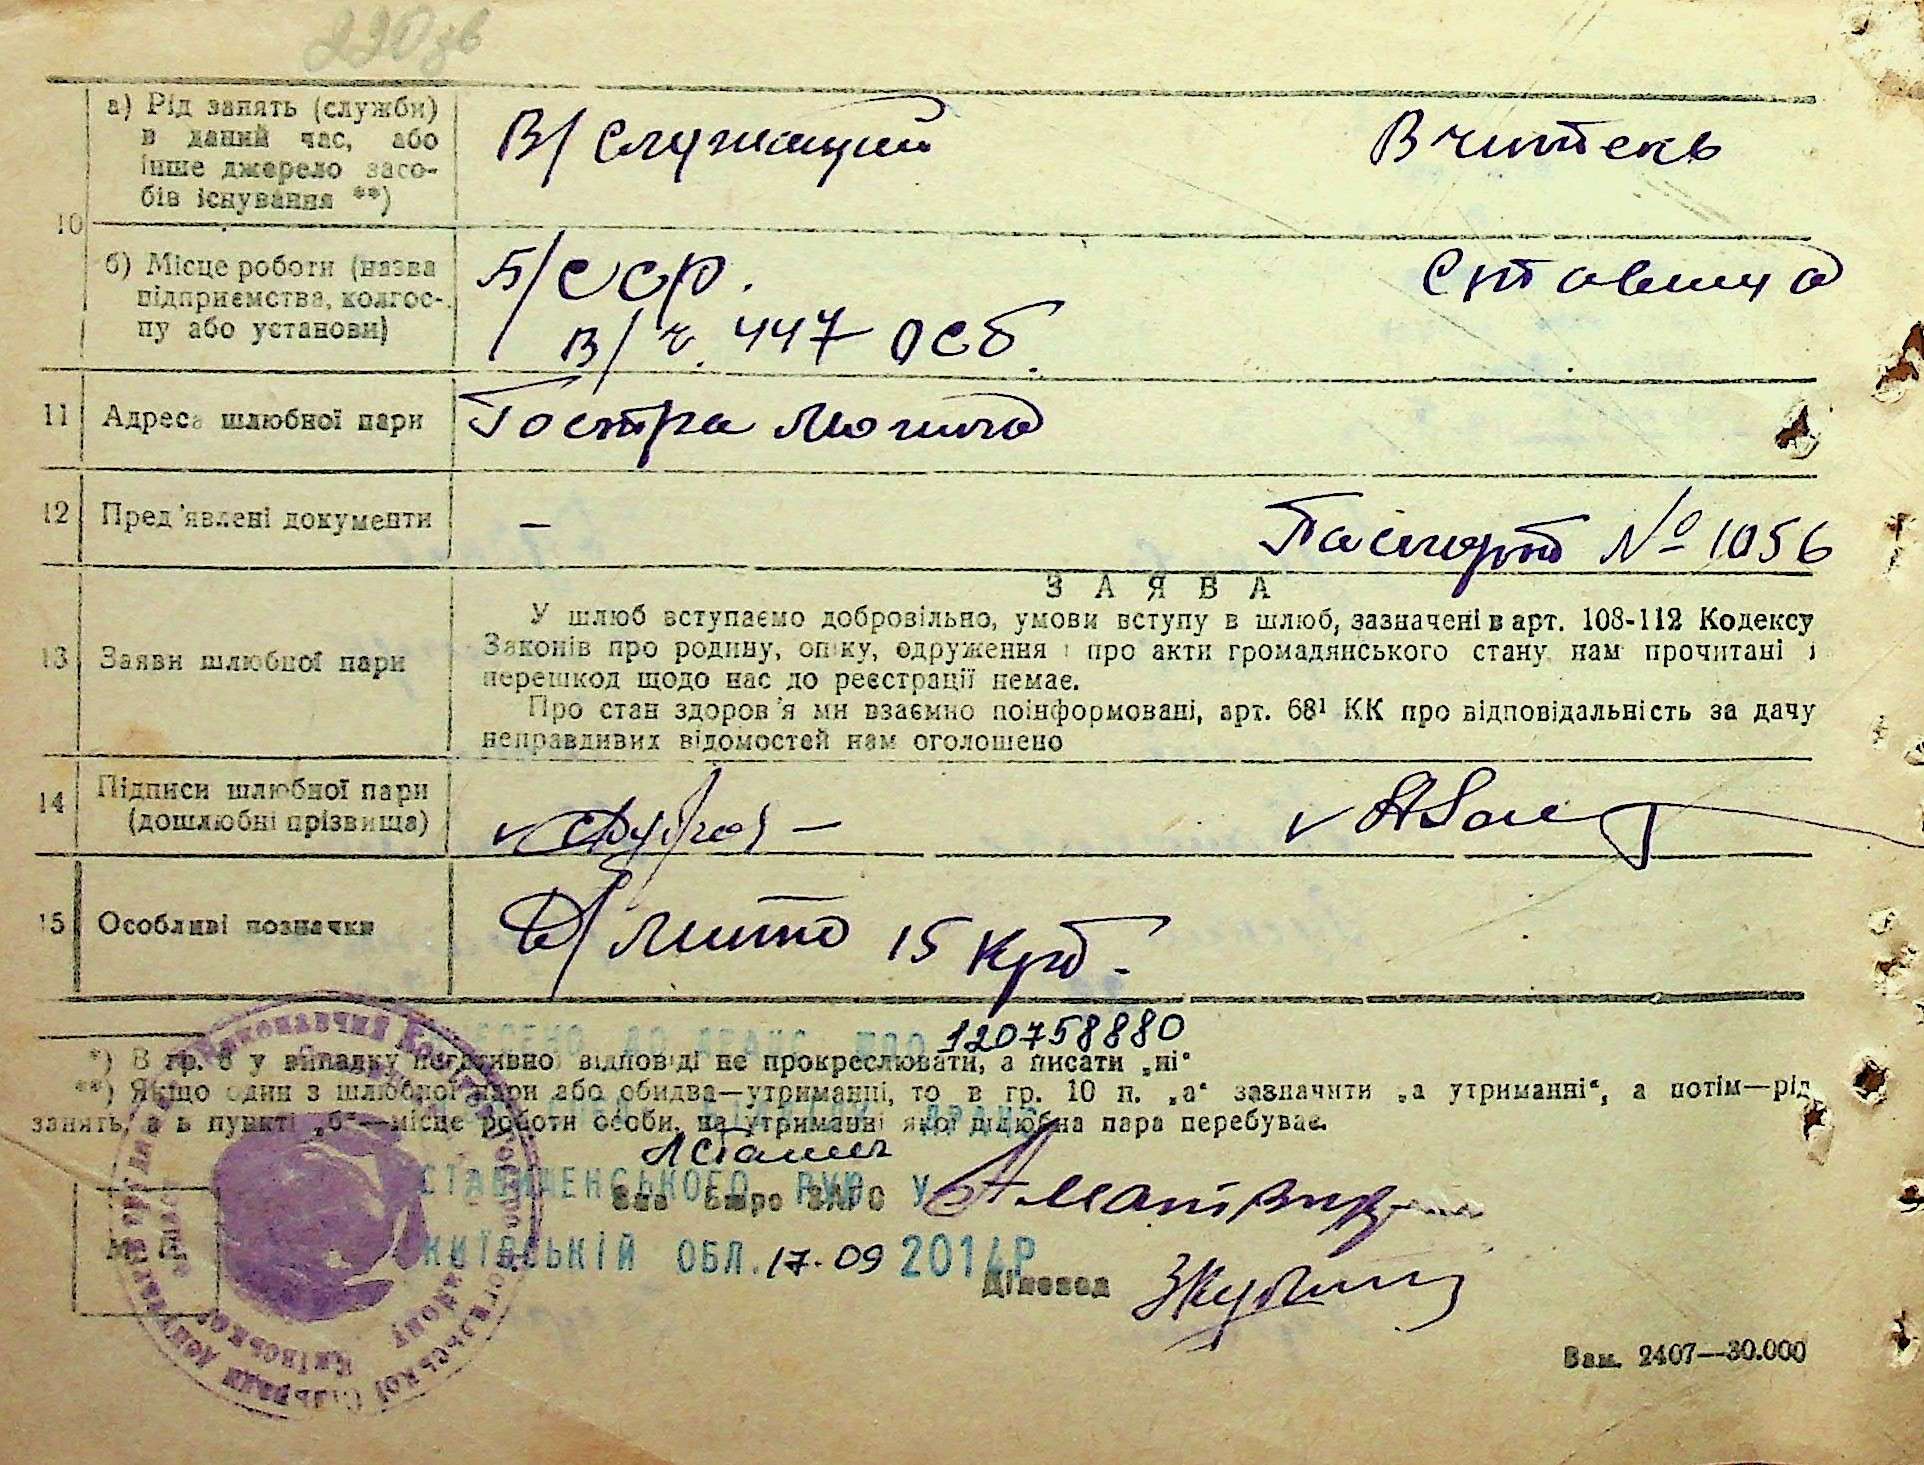 220зв
а) Рід занять (служби)
в даний час, або
інше джерело засо-
бів існування **)
В/служащий
Вчитель
10
б) Місце роботи (назва
підприємства, колгос-
пу або установи)
Б/ССР.
В/ч. 447 ОСБ
Ставища
11 Адреса шлюбної пари
Гостра Могила
12 Пред'явлені документи
–
Паспорт № 1056
13 Заяви шлюбної пари
ЗАЯВА
У шлюб вступаємо добровільно, умови вступу в шлюб, зазначені в арт. 108-112 Кодексу
Законів про родину, опіку, одруження і про акти громадянського стану нам прочитані і
перешкод щодо нас до реєстрації немає.
Про стан здоров'я ми взаємно поінформовані, арт. 68¹ КК про відповідальність за дачу
неправдивих відомостей нам оголошено
14 Підписи шлюбної пари
(дошлюбні прізвища)
15 Особливі позначки
Д/мито 15 крб.
ДО ДРАЦС 120758880
*) В гр. 8 у випадку негативної відповіді не прокреслювати, а писати „ні“
**) Якщо один з шлюбної пари або обидва—утриманці, то в гр. 10 п. „а“ зазначити „а утриманні“, а потім—рід
занять, а в пункті „б“—місце роботи особи, на утриманні якої шлюбна пара перебуває.
СТАВИЩЕНСЬКОГО РУЮ У
Зав. Бюро ЗАГС
КИЇВСЬКІЙ ОБЛ. 17.09 2014Р
Діловод
М
Виконавчий
Зам. 2407—30.000